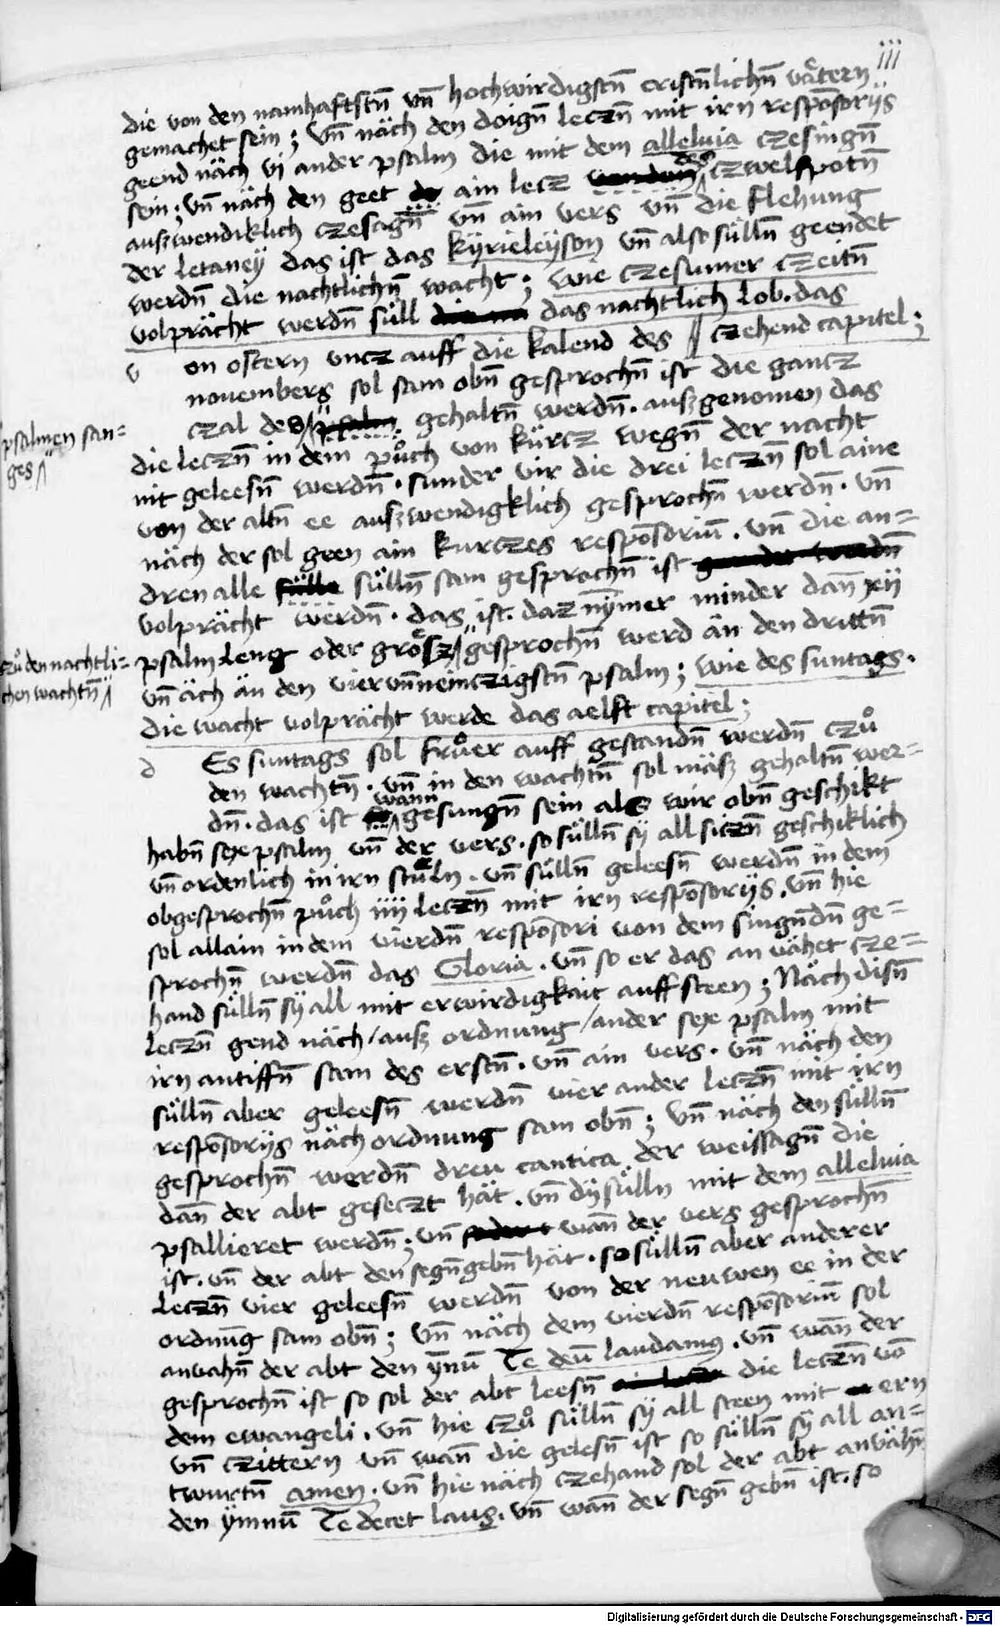 iii
die von den namhaftstn̄ vn̄ hochwirdigstn̄ cristn̄lichn̄ vätern
gemachet sein; Vn̄ näch den doign̄ leczn̄ mit irn respōsorijs
geend näch vi ander psalm die mit dem alleluia czesingn̄
sein; vn̄ näch den geet ain lecz des czwelfpotn̄
auszwendiklich czesagn̄ vn̄ ain vers vn̄ die flehung
der Letaneÿ das ist das kÿrieleÿson vn̄ also sülln̄ geendet
werdn̄ die nachtlichn̄ wacht; wie czesumer czeitn̄
volprächt werdn̄ süll das nachtlich Lob. das
v on ostern vncz auff die kalend des // czehend capitel;
novembers sol sam obn̄ gesprochn̄ ist die gancz
czal des gehaltn̄ werdn̄. auszgenomen das
psalmen san=
ges
die leczn̄ in dem pů̈ch von kürcz wegn̄ der nacht
nit geleesn̄ werdn̄. sunder vir die drei leczn̄ sol aine
von der altn̄ ee auszwendigklich gesprochn̄ werdn̄. vn̄
näch der sol geen ain kurczes respōsoriū. vn̄ die an=
dren alle sülln̄ sam gesprochn̄ ist
volprächt werdn̄. das ist. daz nÿmer minder dan̄ xij
psalm Leng oder grösz gesprochn̄ werd än den drittn̄
czů den nachtli=
chen wachtn̄
vn̄ äch än den viervn̄neinczigstn̄ psalm; wie des suntags.
die wacht volprächt werde das aelft capitel;
d Es suntags sol frůer auff gestandn̄ werdn̄ czů
den wachtn̄. vn̄ in den wachtn̄ sol mäsz gehaltn̄ wer=
dn̄. das ist wann gesungn̄ sein als wir obn̄ geschikt
habn̄ sex psalm vn̄ der vers. so sülln̄ sÿ all siczn̄ geschiklich
vn̄ ordenlich in irn stůln. vn̄ sülln̄ geleesn̄ werdn̄ in dem
obgesprochn̄ půch iiij leczn̄ mit irn respōsorijs. vn̄ hie
sol allain in dem vierdn̄ respōsori von dem singn̄dn̄ ge=
sprochn̄ werdn̄ das Gloria. vn̄ so er das an vähet cze=
hand sülln̄ sÿ all mit erwirdigkait auff steen; Näch disn̄
leczn̄ gend näch / ausz ordnung / ander sex psalm mit
irn antiffn̄ sam des erstn̄. vn̄ ain vers. vn̄ näch den
sülln̄ aber geleesn̄ werdn̄ vier ander leczn̄ mit irn
respōsorijs näch ordnung sam obn̄; Vn̄ näch den sülln̄
gesprochn̄ werdn̄ dreu cantica der weissagn̄ die
dan̄ der abt geseczt hät. vn̄ dÿ sülln mit dem alleluia
psallieret werdn̄; vn̄ wan̄ der vers gesprochn̄
ist. vn̄ der abt den segn̄ gebn̄ hät. so sülln̄ aber anderer
leczn̄ vier geleesn̄ werdn̄ von der neuwen ee in der
ordnūg sam obn̄; Vn̄ näch dem vierdn̄ respōsoriū sol
anvahn̄ der abt den ÿnū Te deū laudamus. vn̄ wan̄ der
gesprochn̄ ist so sol der abt leesn̄ die leczn̄ vō
dem ewangeli. vn̄ hie czů sülln̄ sÿ all steen mit ern
vn̄ czittern vn̄ wan̄ die gelesn̄ ist so sülln̄ sÿ all an=
twurtn̄ amen. vn̄ hie näch czehand sol der abt anvähn̄
den ÿmnū Te decet laus. vn̄ wan̄ der segn̄ gebn̄ ist. so
Digitalisierung gefördert durch die Deutsche Forschungsgemeinschaft - DFG